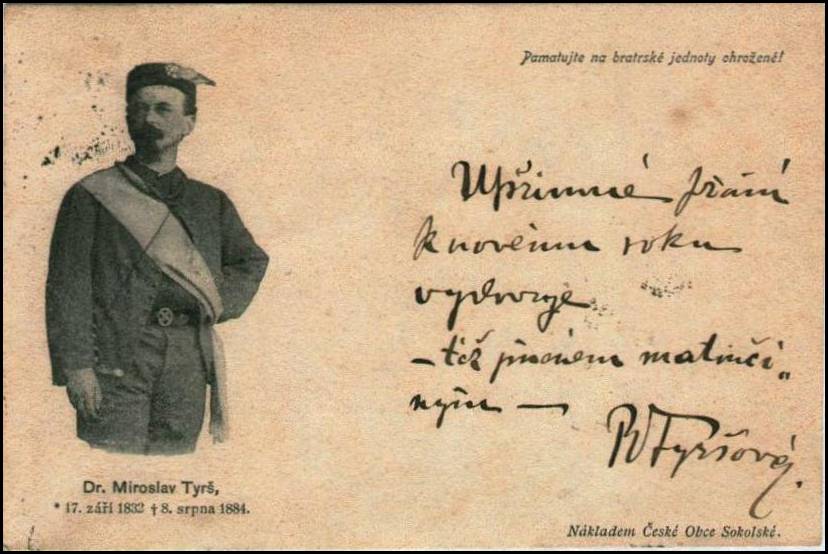 Pamatujte na bratrské jednoty ohrožené!
Upřímné přání
k novému roku
vyslovuje
– též jménem matinči„
ným –
RTyršová.
Dr. Miroslav Tyrš,
* 17. září 1832 † 8. srpna 1884.
Nákladem České Obce Sokolské.